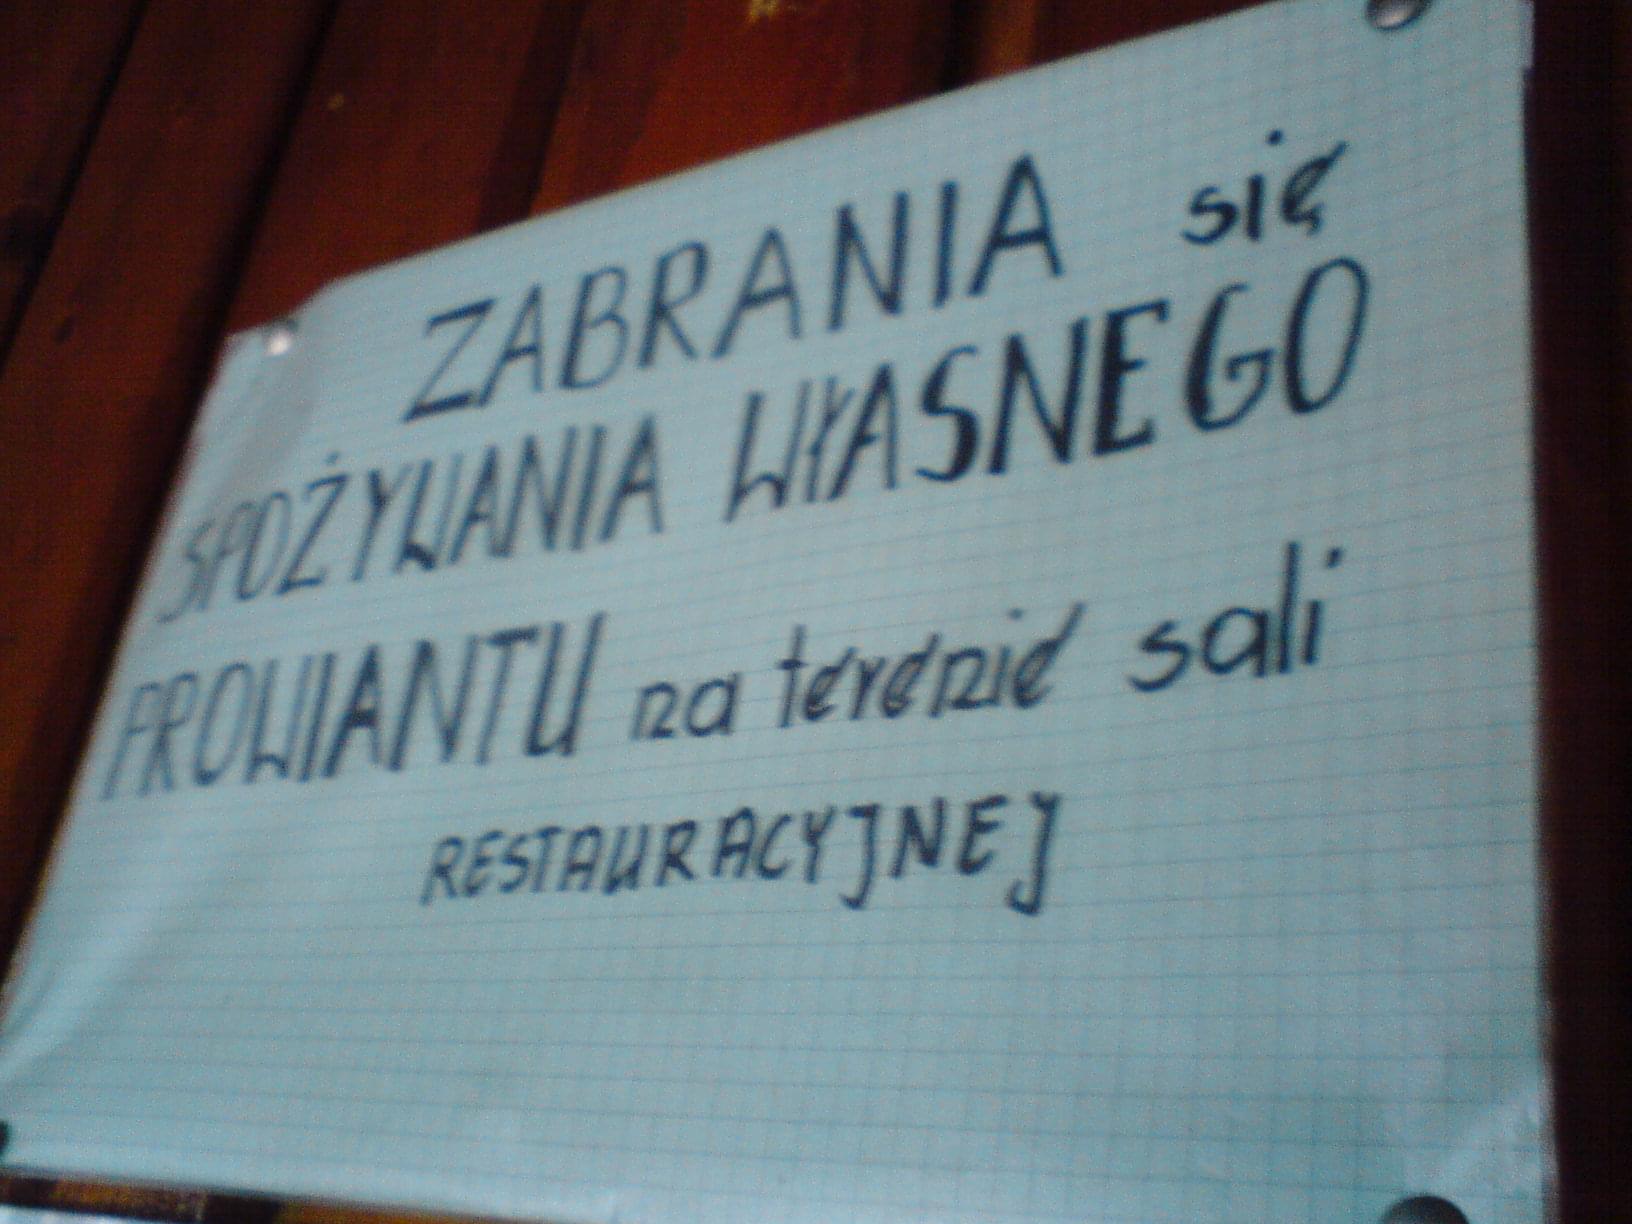 ZABRANIA się
SPOŻYWANIA WŁASNEGO
PROWIANTU na terenie sali
RESTAURACYJNEJ